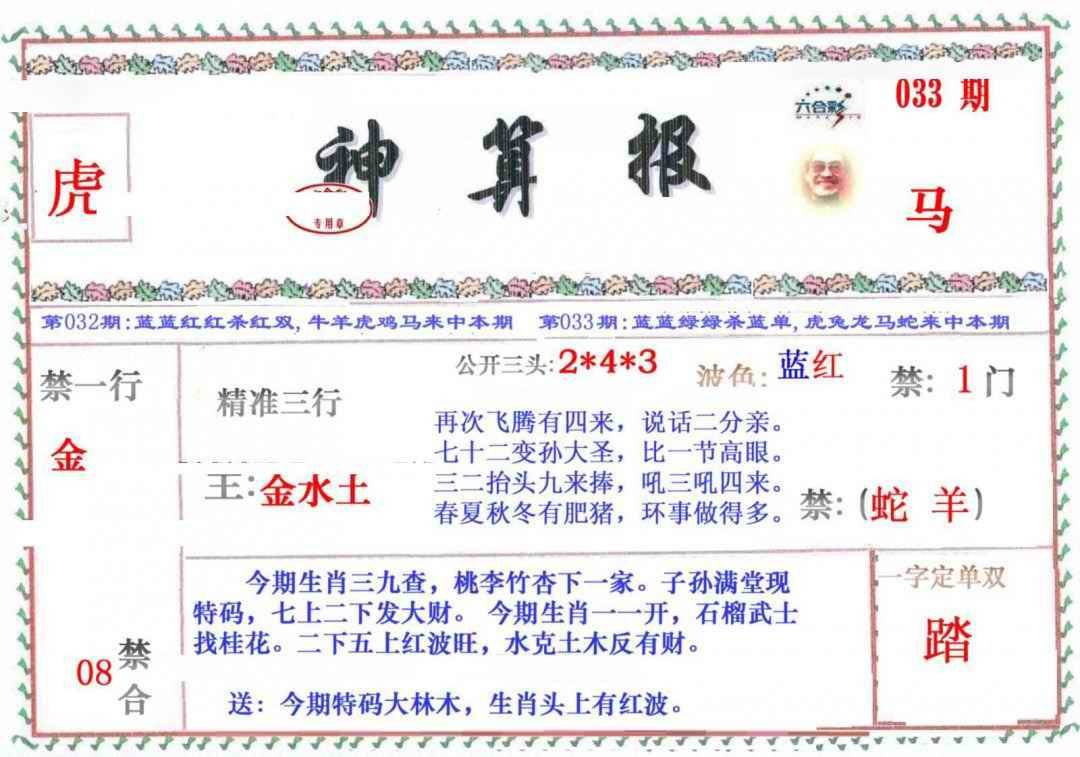 033 期
六合彩
虎
神算报
专用章
马
第032期:蓝蓝红红杀红双,牛羊虎鸡马来中本期 第033期:蓝蓝绿绿杀蓝单,虎兔龙马蛇来中本期
禁一行
金
精准三行
王:金水土
公开三头:2*4*3
波色:蓝红
禁:1门
再次飞腾有四来，说话二分亲。
七十二变孙大圣，比一节高眼。
三二抬头九来捧，吼三吼四来。
春夏秋冬有肥猪，环事做得多。
禁:(蛇 羊)
08
禁合
今期生肖三九查，桃李竹杏下一家。子孙满堂现
特码，七上二下发大财。 今期生肖一一开，石榴武士
找桂花。二下五上红波旺，水克土木反有财。
送：今期特码大林木，生肖头上有红波。
一字定单双
踏